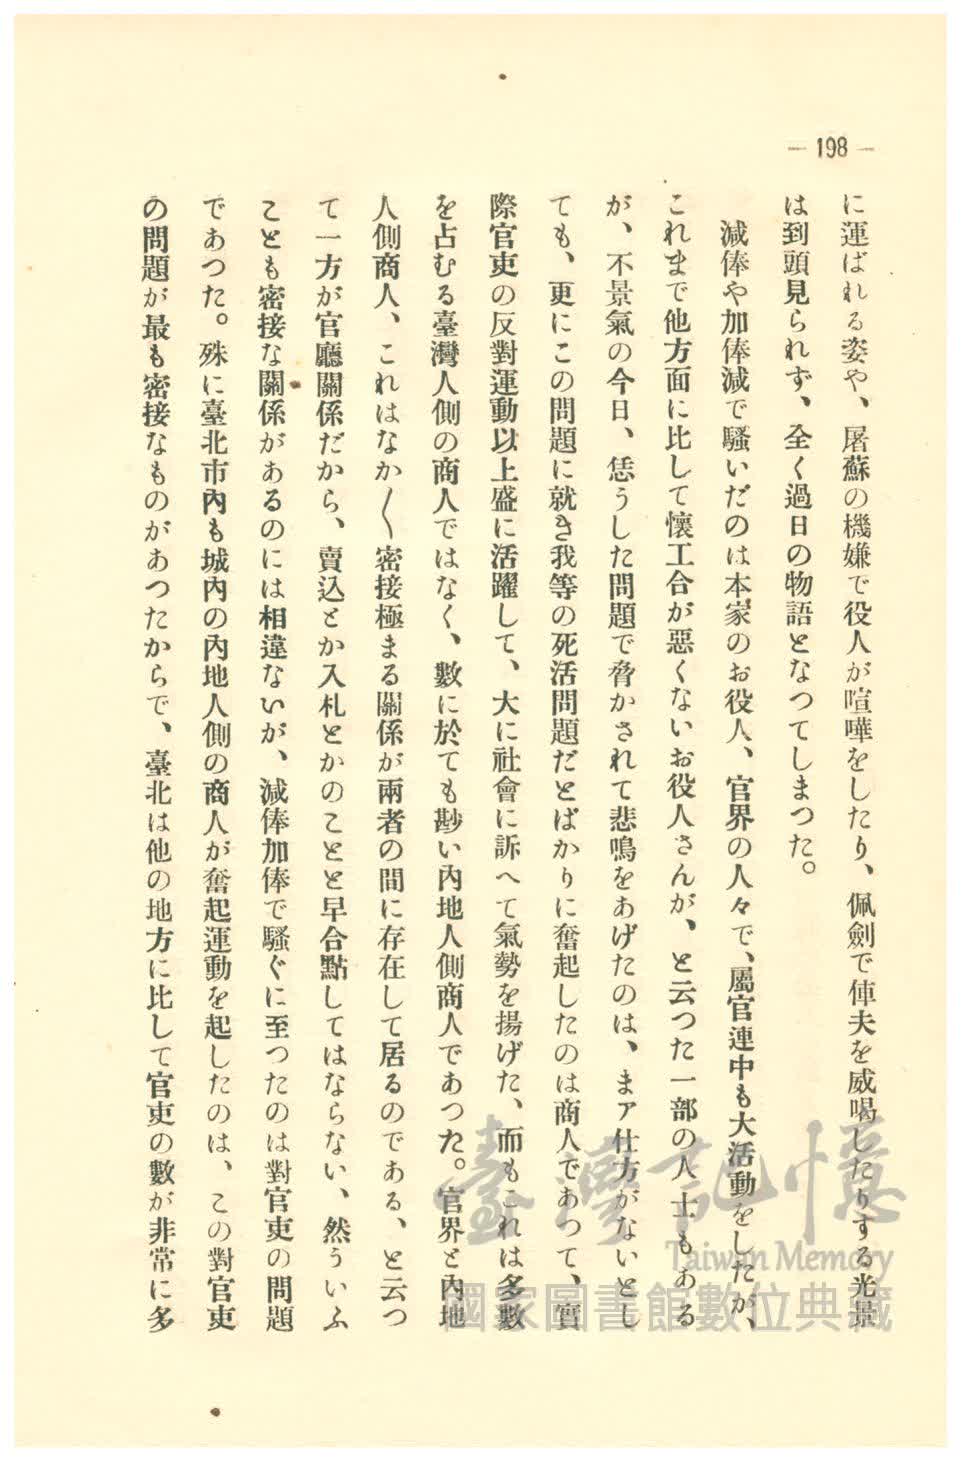 — 198 —
に運ばれる姿や、屠蘇の機嫌で役人が喧嘩をしたり、佩劍で俥夫を威喝したりする光景
は到頭見られず、全く過日の物語となつてしまつた。
減俸や加俸減で騷いだのは本家のお役人、官界の人々で、屬官連中も大活動をしたが、
これまで他方面に比して懷工合が惡くないお役人さんが、と云つた一部の人士もある
が、不景氣の今日、恁うした問題で脅かされて悲鳴をあげたのは、まア仕方がないとし
ても、更にこの問題に就き我等の死活問題だとばかりに奮起したのは商人であつて、實
際官吏の反對運動以上盛に活躍して、大に社會に訴へて氣勢を揚げた、而もこれは多數
を占むる臺灣人側の商人ではなく、數に於ても尠い內地人側商人であつた。官界と內地
人側商人、これはなか〱密接極まる關係が兩者の間に存在して居るのである、と云つ
て一方が官廳關係だから、賣込とか入札とかのことと早合點してはならない、然ういふ
ことも密接な關係があるのには相違ないが、減俸加俸で騷ぐに至つたのは對官吏の問題
であつた。殊に臺北市內も城內の內地人側の商人が奮起運動を起したのは、この對官吏
の問題が最も密接なものがあつたからで、臺北は他の地方に比して官吏の數が非常に多
臺灣記憶
Taiwan Memory
國家圖書館數位典藏